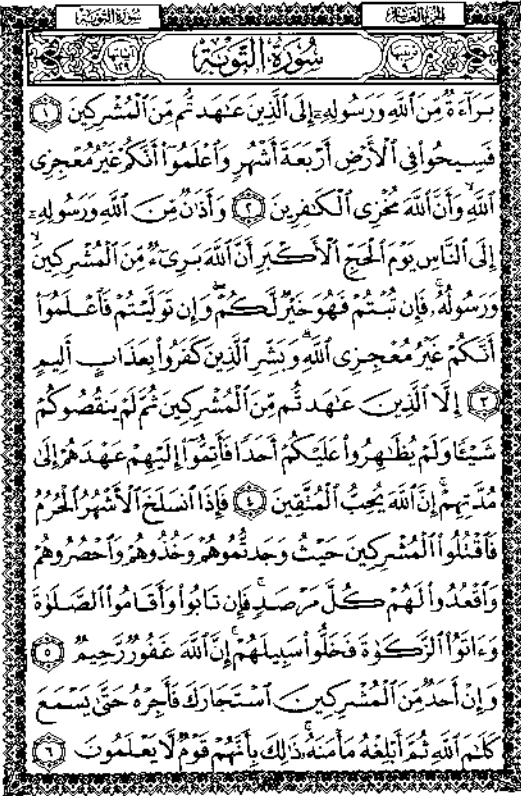 سُورَةُ التَّوْبَةِ
الجزء العاشر
سُورَةُ التَّوْبَةِ
بَرَآءَةٌ مِّنَ ٱللَّهِ وَرَسُولِهِۦٓ إِلَى ٱلَّذِينَ عَٰهَدتُّم مِّنَ ٱلْمُشْرِكِينَ ١
فَسِيحُوا۟ فِى ٱلْأَرْضِ أَرْبَعَةَ أَشْهُرٍ وَٱعْلَمُوٓا۟ أَنَّكُمْ غَيْرُ مُعْجِزِى
ٱللَّهِ ۙ وَأَنَّ ٱللَّهَ مُخْزِى ٱلْكَٰفِرِينَ ٢ وَأَذَٰنٌ مِّنَ ٱللَّهِ وَرَسُولِهِۦٓ
إِلَى ٱلنَّاسِ يَوْمَ ٱلْحَجِّ ٱلْأَكْبَرِ أَنَّ ٱللَّهَ بَرِىٓءٌ مِّنَ ٱلْمُشْرِكِينَ ۙ
وَرَسُولُهُۥ ۚ فَإِن تُبْتُمْ فَهُوَ خَيْرٌ لَّكُمْ ۖ وَإِن تَوَلَّيْتُمْ فَٱعْلَمُوٓا۟
أَنَّكُمْ غَيْرُ مُعْجِزِى ٱللَّهِ ۗ وَبَشِّرِ ٱلَّذِينَ كَفَرُوا۟ بِعَذَابٍ أَلِيمٍ
٣ إِلَّا ٱلَّذِينَ عَٰهَدتُّم مِّنَ ٱلْمُشْرِكِينَ ثُمَّ لَمْ يَنقُصُوكُمْ
شَيْـًٔا وَلَمْ يُظَٰهِرُوا۟ عَلَيْكُمْ أَحَدًا فَأَتِمُّوٓا۟ إِلَيْهِمْ عَهْدَهُمْ إِلَىٰ
مُدَّتِهِمْ ۚ إِنَّ ٱللَّهَ يُحِبُّ ٱلْمُتَّقِينَ ٤ فَإِذَا ٱنسَلَخَ ٱلْأَشْهُرُ ٱلْحُرُمُ
فَٱقْتُلُوا۟ ٱلْمُشْرِكِينَ حَيْثُ وَجَدتُّمُوهُمْ وَخُذُوهُمْ وَٱحْصُرُوهُمْ
وَٱقْعُدُوا۟ لَهُمْ كُلَّ مَرْصَدٍ ۚ فَإِن تَابُوا۟ وَأَقَامُوا۟ ٱلصَّلَوٰةَ
وَءَاتَوُا۟ ٱلزَّكَوٰةَ فَخَلُّوا۟ سَبِيلَهُمْ ۚ إِنَّ ٱللَّهَ غَفُورٌ رَّحِيمٌ ٥
وَإِنْ أَحَدٌ مِّنَ ٱلْمُشْرِكِينَ ٱسْتَجَارَكَ فَأَجِرْهُ حَتَّىٰ يَسْمَعَ
كَلَٰمَ ٱللَّهِ ثُمَّ أَبْلِغْهُ مَأْمَنَهُۥ ۚ ذَٰلِكَ بِأَنَّهُمْ قَوْمٌ لَّا يَعْلَمُونَ ٦